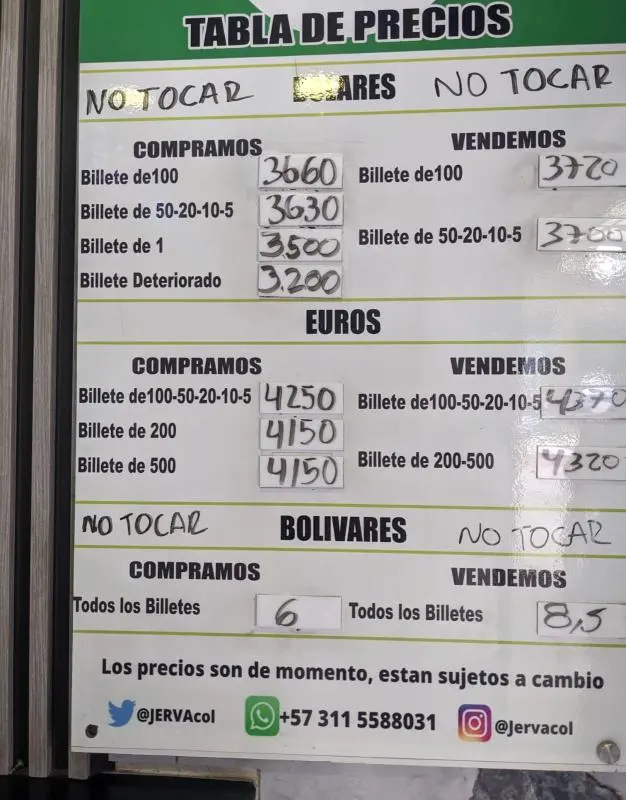 TABLA DE PRECIOS
NO TOCAR DOLARES NO TOCAR
COMPRAMOS VENDEMOS
Billete de100 3660 Billete de100 3720
Billete de 50-20-10-5 3630 Billete de 50-20-10-5 3700
Billete de 1 3.500
Billete Deteriorado 3.200
EUROS
COMPRAMOS VENDEMOS
Billete de100-50-20-10-5 4250 Billete de100-50-20-10-5 4370
Billete de 200 4150
Billete de 500 4150 Billete de 200-500 4320
NO TOCAR BOLIVARES NO TOCAR
COMPRAMOS VENDEMOS
Todos los Billetes 6 Todos los Billetes 8,5
Los precios son de momento, estan sujetos a cambio
@JERVAcol +57 311 5588031 @Jervacol